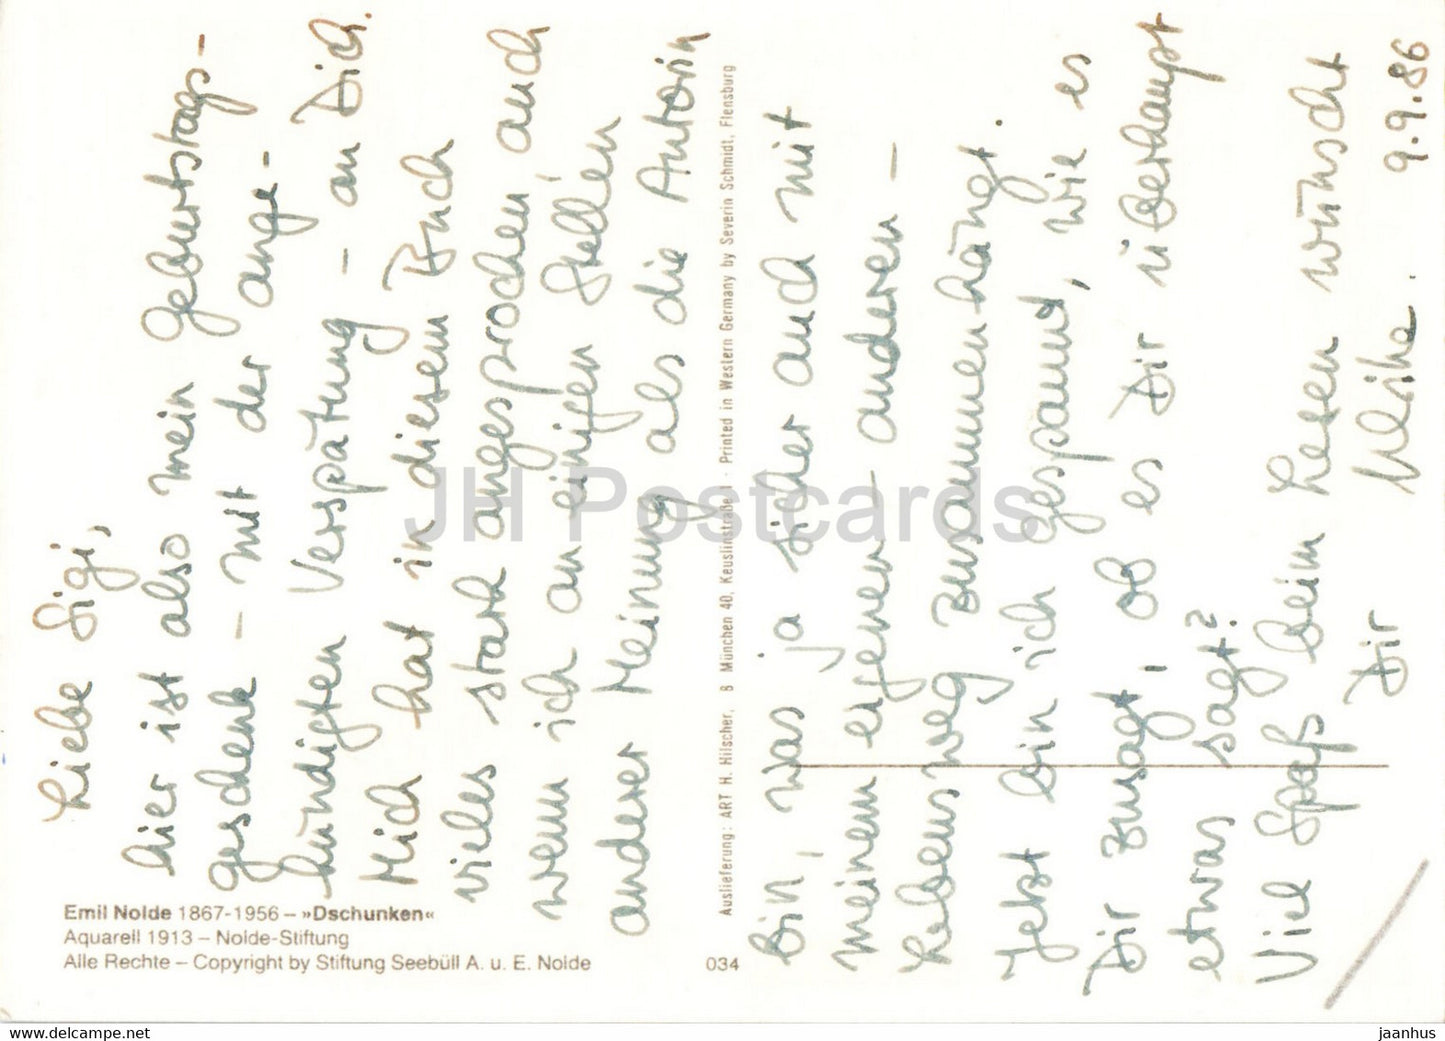 Liebe Sigi,
hier ist also mein Geburtstags-
geschenk – mit der ange-
kündigten Verspätung – an Dich.
Mich hat in diesem Buch
vieles stark angesprochen, auch
wenn ich an einigen Stellen
anderer Meinung als die Autorin
bin, was ja sicher auch mit
meinem eigenen – anderen –
Lebensweg zusammenhängt.
Jetzt bin ich gespannt, wie es
Dir zusagt, ob es Dir überhaupt
etwas sagt?
Viel Spaß beim Lesen wünscht
Dir Ulrike.
9.9.86
Auslieferung: ART H. Hilscher, 8 München 40, Keuslinstraße 1 · Printed in Western Germany by Severin Schmidt, Flensburg
Emil Nolde 1867-1956 – »Dschunken«
Aquarell 1913 – Nolde-Stiftung
Alle Rechte – Copyright by Stiftung Seebüll A. u. E. Nolde
034
JH Postcards
www.delcampe.net
jaanhus